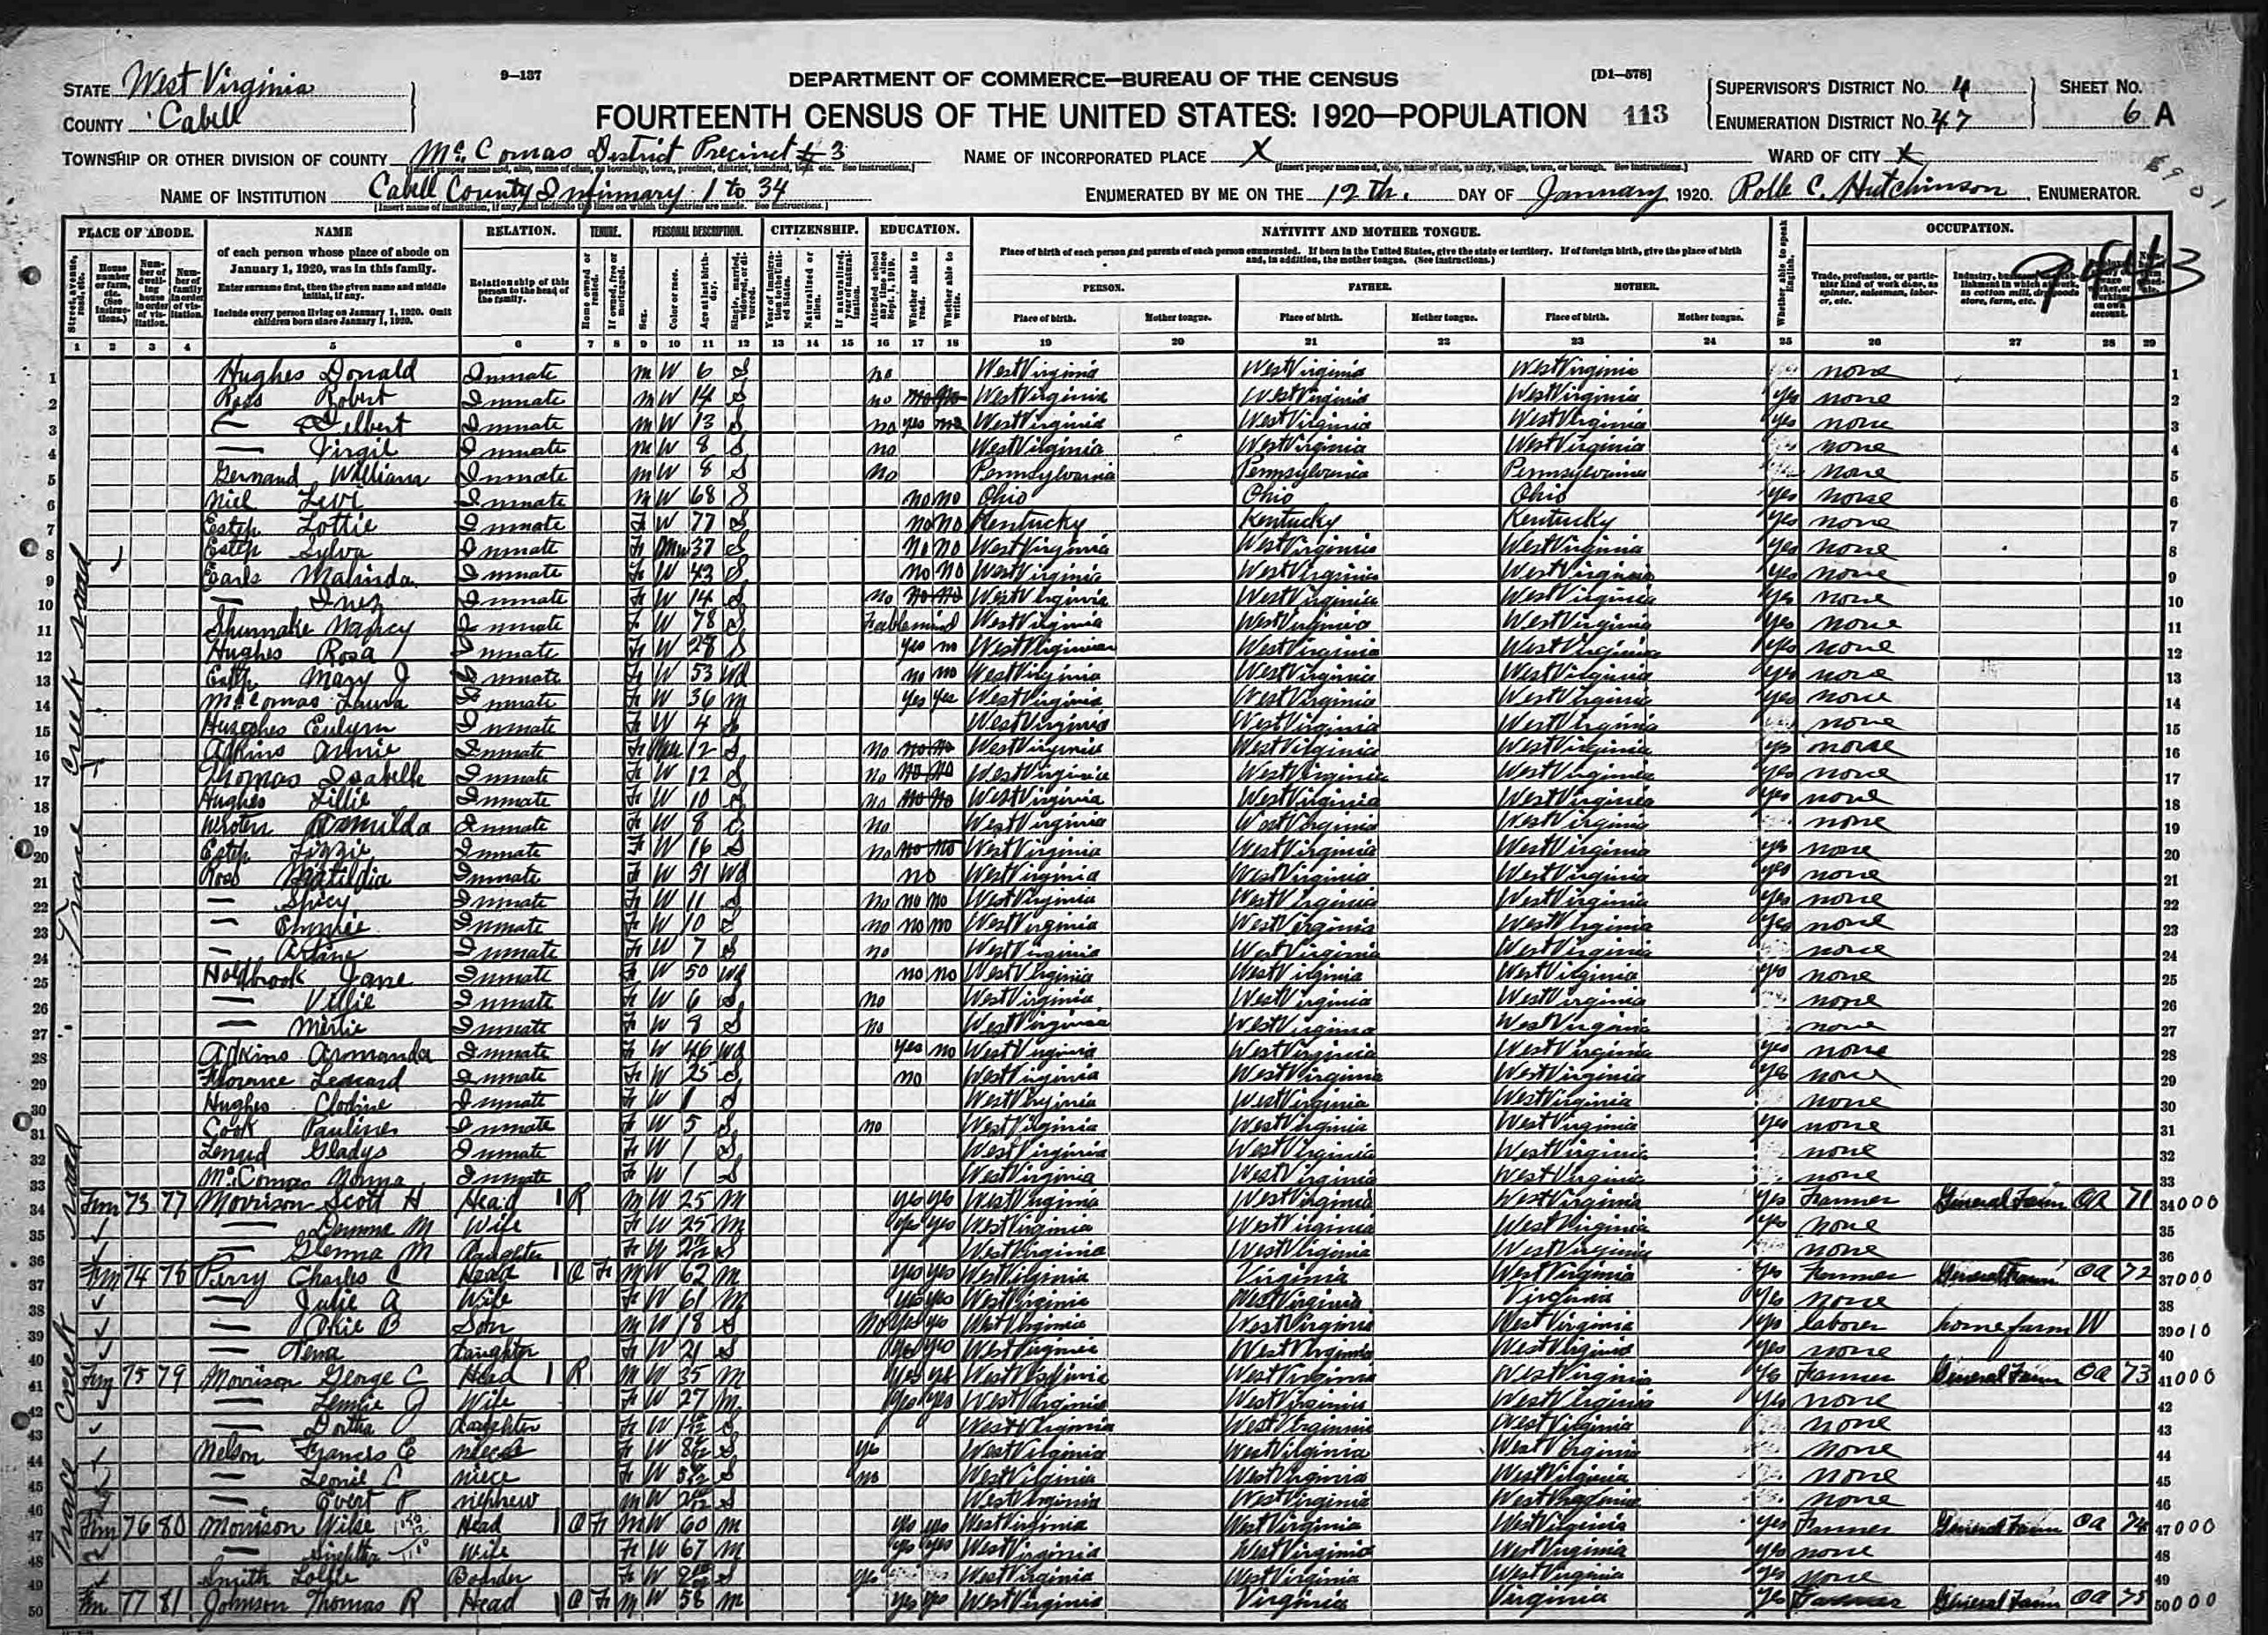 9–137 DEPARTMENT OF COMMERCE—BUREAU OF THE CENSUS [D1–578]
STATE West Virginia
COUNTY Cabell
FOURTEENTH CENSUS OF THE UNITED STATES: 1920—POPULATION 113
SUPERVISOR'S DISTRICT No. 4 SHEET No.
ENUMERATION DISTRICT No. 47 6 A
TOWNSHIP OR OTHER DIVISION OF COUNTY Mc Comas District Precinct # 3 NAME OF INCORPORATED PLACE X WARD OF CITY X
NAME OF INSTITUTION Cabell County Infirmary 1 to 34 ENUMERATED BY ME ON THE 12th. DAY OF January 1920. Rolla C. Hutchinson, ENUMERATOR.
PLACE OF ABODE. NAME RELATION. TENURE. PERSONAL DESCRIPTION. CITIZENSHIP. EDUCATION. NATIVITY AND MOTHER TONGUE. OCCUPATION.
of each person whose place of abode on January 1, 1920, was in this family.
Enter surname first, then the given name and middle initial, if any.
Include every person living on January 1, 1920. Omit children born since January 1, 1920.
Relationship of this person to the head of the family.
Place of birth of each person and parents of each person enumerated. If born in the United States, give the state or territory. If of foreign birth, give the place of birth and, in addition, the mother tongue. (See instructions.)
PERSON. FATHER. MOTHER.
Place of birth. Mother tongue. Place of birth. Mother tongue. Place of birth. Mother tongue.
1 2 3 4 5 6 7 8 9 10 11 12 13 14 15 16 17 18 19 20 21 22 23 24 25 26 27 28 29
Trace Creek road
1 Hughes Donald Inmate M W 6 S no West Virginia West Virginia West Virginia none 1
2 Ross Robert Inmate M W 14 S no no no West Virginia West Virginia West Virginia yes none 2
3 — Delbert Inmate M W 13 S no yes no West Virginia West Virginia West Virginia yes none 3
4 — Virgil Inmate M W 8 S no West Virginia West Virginia West Virginia none 4
5 Gernand William Inmate M W 8 S no Pennsylvania Pennsylvania Pennsylvania none 5
6 Niel Levi Inmate M W 68 S no no Ohio Ohio Ohio yes none 6
7 Estep Lottie Inmate F W 77 S no no Kentucky Kentucky Kentucky yes none 7
8 Estep Sylva Inmate F Mu 37 S no no West Virginia West Virginia West Virginia yes none 8
9 Earls Malinda Inmate F W 43 S no no West Virginia West Virginia West Virginia yes none 9
10 — Inez Inmate F W 14 S no no no West Virginia West Virginia West Virginia yes none 10
11 Shumake Nancy Inmate F W 78 S Feablemind West Virginia West Virginia West Virginia yes none 11
12 Hughes Rosa Inmate F W 28 S yes no West Virginia West Virginia West Virginia yes none 12
13 Mary J Inmate F W 53 Wd no no West Virginia West Virginia West Virginia yes none 13
14 McComas Laura Inmate F W 36 M yes yes West Virginia West Virginia West Virginia yes none 14
15 Hughes Inmate F W 4 S West Virginia West Virginia West Virginia none 15
16 Adkins Annie Inmate F Mu 12 S no no no West Virginia West Virginia West Virginia yes none 16
17 Thomas Isabelle Inmate F W 12 S no no no West Virginia West Virginia West Virginia yes none 17
18 Hughes Lillie Inmate F W 10 S no no no West Virginia West Virginia West Virginia yes none 18
19 Wroten Inmate F W 8 S no West Virginia West Virginia West Virginia none 19
20 Estep Lizzie Inmate F W 16 S no no no West Virginia West Virginia West Virginia yes none 20
21 Ross Matildia Inmate F W 51 Wd no West Virginia West Virginia West Virginia yes none 21
22 — Spicy Inmate F W 11 S no no no West Virginia West Virginia West Virginia yes none 22
23 — Inmate F W 10 S no no no West Virginia West Virginia West Virginia yes none 23
24 — Arline Inmate F W 7 S no West Virginia West Virginia West Virginia none 24
25 Holdbrook Jane Inmate F W 50 Wd no no West Virginia West Virginia West Virginia yes none 25
26 — Villie Inmate F W 6 S no West Virginia West Virginia West Virginia none 26
27 — Mirtie Inmate F W 8 S no West Virginia West Virginia West Virginia none 27
28 Adkins Armanda Inmate F W 46 Wd yes no West Virginia West Virginia West Virginia yes none 28
29 Florence Leneard Inmate F W 25 S no West Virginia West Virginia West Virginia yes none 29
30 Hughes Clodine Inmate F W 1 S West Virginia West Virginia West Virginia none 30
31 Cook Pauline Inmate F W 5 S no West Virginia West Virginia West Virginia yes none 31
32 Lenard Gladys Inmate F W 1 S West Virginia West Virginia West Virginia none 32
33 McComas Inmate F W 1 S West Virginia West Virginia West Virginia none 33
34 Fm 73 77 Morrison Scott H Head 1 R M W 25 M yes yes West Virginia West Virginia West Virginia yes Farmer General Farm OA 71 34 000
35 — M Wife F W 25 M yes yes West Virginia West Virginia West Virginia yes none 35
36 — Glenna M Daughter F W S West Virginia West Virginia West Virginia none 36
37 Fm 74 78 Perry Charles C Head 1 O F M W 62 M yes yes West Virginia Virginia West Virginia yes Farmer General Farm OA 72 37 000
38 — Julie A Wife F W 61 M yes yes West Virginia West Virginia Virginia yes none 38
39 — Okie B Son M W 18 S no yes yes West Virginia West Virginia West Virginia yes laborer home farm W 39 010
40 — Daughter F W 21 S yes yes West Virginia West Virginia West Virginia yes none 40
41 Fm 75 79 Morrison George C Head 1 R M W 35 M yes yes West Virginia West Virginia West Virginia yes Farmer General Farm OA 73 41 000
42 — Lennie J Wife F W 27 M yes yes West Virginia West Virginia West Virginia yes none 42
43 — Dortha Daughter F W S West Virginia West Virginia West Virginia none 43
44 Nelson Francis E niece F W S yes West Virginia West Virginia West Virginia none 44
45 — C niece F W S no West Virginia West Virginia West Virginia none 45
46 — Evert P nephew M W S West Virginia West Virginia West Virginia none 46
47 Fm 76 80 Morrison Wilse Head 1 O F M W 60 M yes yes West Virginia West Virginia West Virginia yes Farmer General Farm OA 74 47 000
48 — Wife F W 67 M yes yes West Virginia West Virginia West Virginia yes none 48
49 Smith Boarder F W S yes West Virginia West Virginia West Virginia yes none 49
50 Fm 77 81 Johnson Thomas R Head 1 O F M W 58 M yes yes West Virginia Virginia Virginia yes Farmer General Farm OA 75 50 000